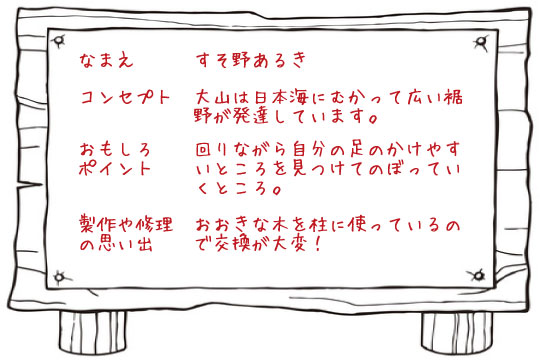 なまえ　すそ野あるき
コンセプト　大山は日本海にむかって広い裾
野が発達しています。
おもしろ　回りながら自分の足のかけやす
ポイント　いところを見つけてのぼってい
くところ。
製作や修理　おおきな木を柱に使っているの
の思い出　で交換が大変！